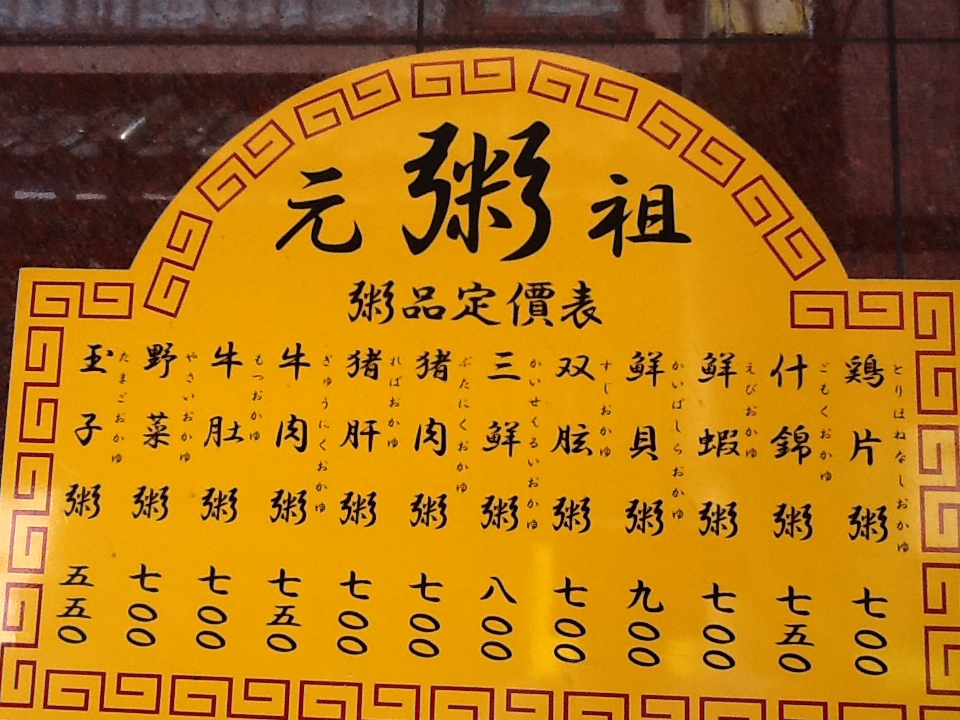 元粥祖
粥品定價表
鶏片粥 とりほねなしおかゆ 七〇〇
什錦粥 ごもくおかゆ 七五〇
鮮蝦粥 えびおかゆ 七〇〇
鮮貝粥 かいばしらおかゆ 九〇〇
双胘粥 すじおかゆ 七〇〇
三鮮粥 かいせんるいおかゆ 八〇〇
猪肉粥 ぶたにくおかゆ 七〇〇
猪肝粥 ればおかゆ 七〇〇
牛肉粥 ぎゅうにくおかゆ 七五〇
牛肚粥 もつおかゆ 七〇〇
野菜粥 やさいおかゆ 七〇〇
玉子粥 たまごおかゆ 五五〇